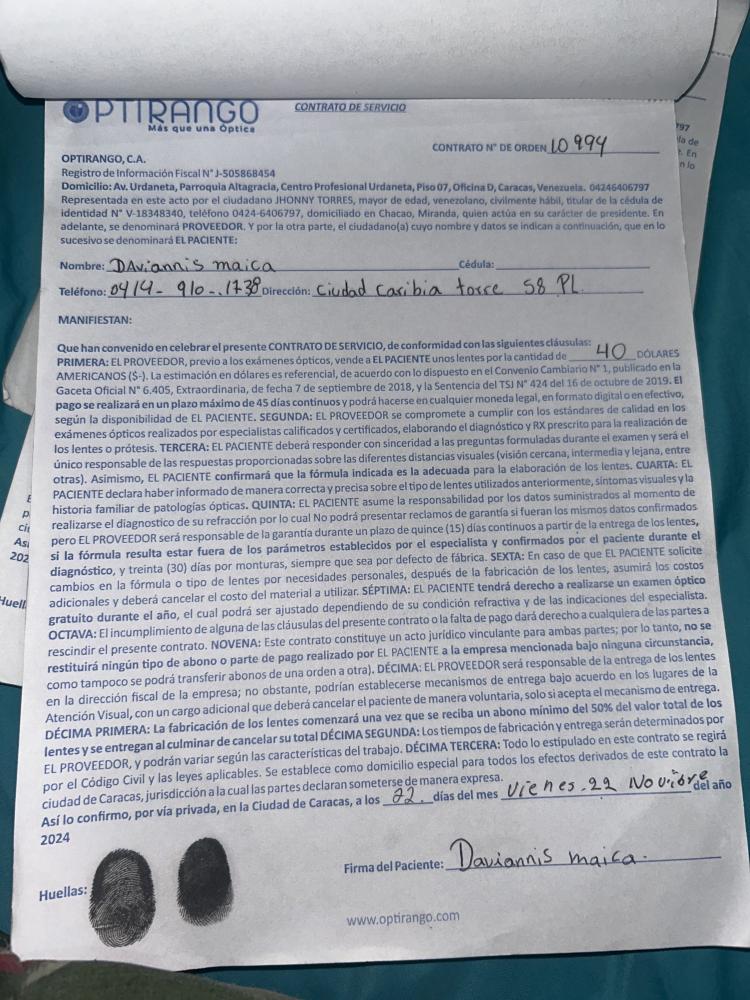 OPTIRANGO
Más que una Óptica
CONTRATO DE SERVICIO
CONTRATO N° DE ORDEN 10994
OPTIRANGO, C.A.
Registro de Información Fiscal N° J-505868454
Domicilio: Av. Urdaneta, Parroquia Altagracia, Centro Profesional Urdaneta, Piso 07, Oficina D, Caracas, Venezuela. 04246406797
Representada en este acto por el ciudadano JHONNY TORRES, mayor de edad, venezolano, civilmente hábil, titular de la cédula de
identidad N° V-18348340, teléfono 0424-6406797, domiciliado en Chacao, Miranda, quien actúa en su carácter de presidente. En
adelante, se denominará PROVEEDOR. Y por la otra parte, el ciudadano(a) cuyo nombre y datos se indican a continuación, que en lo
sucesivo se denominará EL PACIENTE:
Nombre: DAviannis maica Cédula:
Teléfono: 0414-910-1738 Dirección: Ciudad Caribia torre 58 PL
MANIFIESTAN:
Que han convenido en celebrar el presente CONTRATO DE SERVICIO, de conformidad con las siguientes cláusulas:
PRIMERA: EL PROVEEDOR, previo a los exámenes ópticos, vende a EL PACIENTE unos lentes por la cantidad de 40 DÓLARES
AMERICANOS ($-). La estimación en dólares es referencial, de acuerdo con lo dispuesto en el Convenio Cambiario N° 1, publicado en la
Gaceta Oficial N° 6.405, Extraordinaria, de fecha 7 de septiembre de 2018, y la Sentencia del TSJ N° 424 del 16 de octubre de 2019. El
pago se realizará en un plazo máximo de 45 días continuos y podrá hacerse en cualquier moneda legal, en formato digital o en efectivo,
según la disponibilidad de EL PACIENTE. SEGUNDA: EL PROVEEDOR se compromete a cumplir con los estándares de calidad en los
exámenes ópticos realizados por especialistas calificados y certificados, elaborando el diagnóstico y RX prescrito para la realización de
los lentes o prótesis. TERCERA: EL PACIENTE deberá responder con sinceridad a las preguntas formuladas durante el examen y será el
único responsable de las respuestas proporcionadas sobre las diferentes distancias visuales (visión cercana, intermedia y lejana, entre
otras). Asimismo, EL PACIENTE confirmará que la fórmula indicada es la adecuada para la elaboración de los lentes. CUARTA: EL
PACIENTE declara haber informado de manera correcta y precisa sobre el tipo de lentes utilizados anteriormente, síntomas visuales y la
historia familiar de patologías ópticas. QUINTA: EL PACIENTE asume la responsabilidad por los datos suministrados al momento de
realizarse el diagnostico de su refracción por lo cual No podrá presentar reclamos de garantía si fueran los mismos datos confirmados
pero EL PROVEEDOR será responsable de la garantía durante un plazo de quince (15) días continuos a partir de la entrega de los lentes,
si la fórmula resulta estar fuera de los parámetros establecidos por el especialista y confirmados por el paciente durante el
diagnóstico, y treinta (30) días por monturas, siempre que sea por defecto de fábrica. SEXTA: En caso de que EL PACIENTE solicite
cambios en la fórmula o tipo de lentes por necesidades personales, después de la fabricación de los lentes, asumirá los costos
adicionales y deberá cancelar el costo del material a utilizar. SÉPTIMA: EL PACIENTE tendrá derecho a realizarse un examen óptico
gratuito durante el año, el cual podrá ser ajustado dependiendo de su condición refractiva y de las indicaciones del especialista.
OCTAVA: El incumplimiento de alguna de las cláusulas del presente contrato o la falta de pago dará derecho a cualquiera de las partes a
rescindir el presente contrato. NOVENA: Este contrato constituye un acto jurídico vinculante para ambas partes; por lo tanto, no se
restituirá ningún tipo de abono o parte de pago realizado por EL PACIENTE a la empresa mencionada bajo ninguna circunstancia,
como tampoco se podrá transferir abonos de una orden a otra). DÉCIMA: EL PROVEEDOR será responsable de la entrega de los lentes
en la dirección fiscal de la empresa; no obstante, podrían establecerse mecanismos de entrega bajo acuerdo en los lugares de la
Atención Visual, con un cargo adicional que deberá cancelar el paciente de manera voluntaria, solo si acepta el mecanismo de entrega.
DÉCIMA PRIMERA: La fabricación de los lentes comenzará una vez que se reciba un abono mínimo del 50% del valor total de los
lentes y se entregan al culminar de cancelar su total DÉCIMA SEGUNDA: Los tiempos de fabricación y entrega serán determinados por
EL PROVEEDOR, y podrán variar según las características del trabajo. DÉCIMA TERCERA: Todo lo estipulado en este contrato se regirá
por el Código Civil y las leyes aplicables. Se establece como domicilio especial para todos los efectos derivados de este contrato la
ciudad de Caracas, jurisdicción a la cual las partes declaran someterse de manera expresa.
Así lo confirmo, por vía privada, en la Ciudad de Caracas, a los 22 días del mes Vienes.22 Novibre del año
2024
Huellas:
Firma del Paciente: Daviannis maica.
www.optirango.com